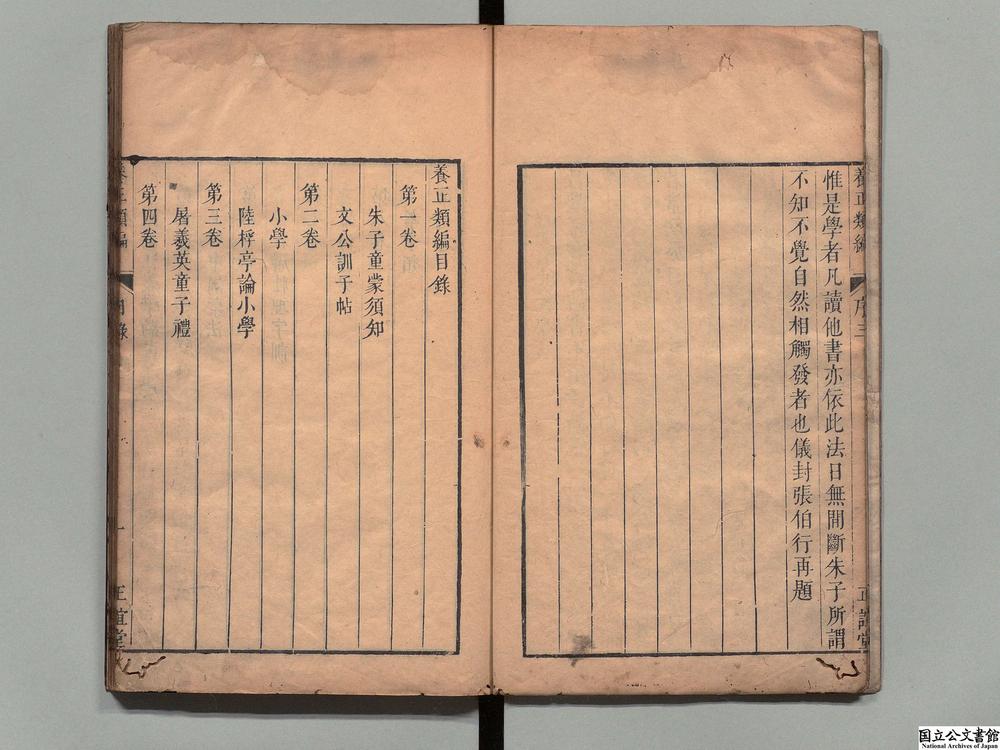 養正類編
序三
正誼堂
惟是學者凡讀他書亦依此法日無間斷朱子所謂
不知不覺自然相觸發者也儀封張伯行再題
養正類編目錄
第一卷
朱子童蒙須知
文公訓子帖
第二卷
小學
陸桴亭論小學
第三卷
屠羲英童子禮
第四卷
養正類編
目錄
一
正誼堂
国立公文書館
National Archives of Japan